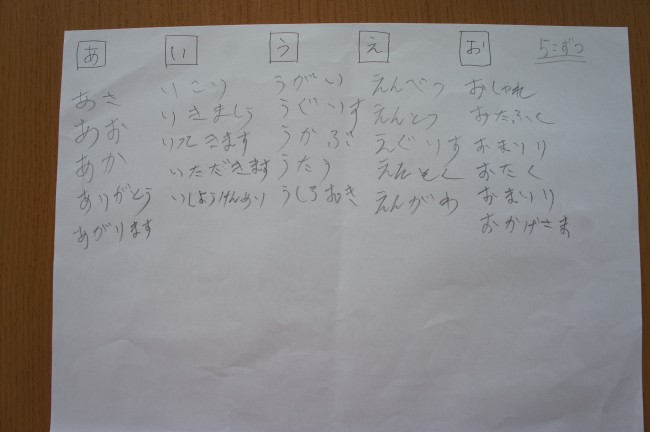 あ
あさ
あお
あか
ありがとう
あがります
い
いこい
いきましょう
いってきます
いただきます
う
うがい
うぐいす
うかぶ
うたう
うしろむき
え
えんぺつ
えんとつ
えぐりす
えんそく
えんがわ
お
おしゃれ
おたふく
おまいり
おたく
おまいり
おかげさま
5こずつ